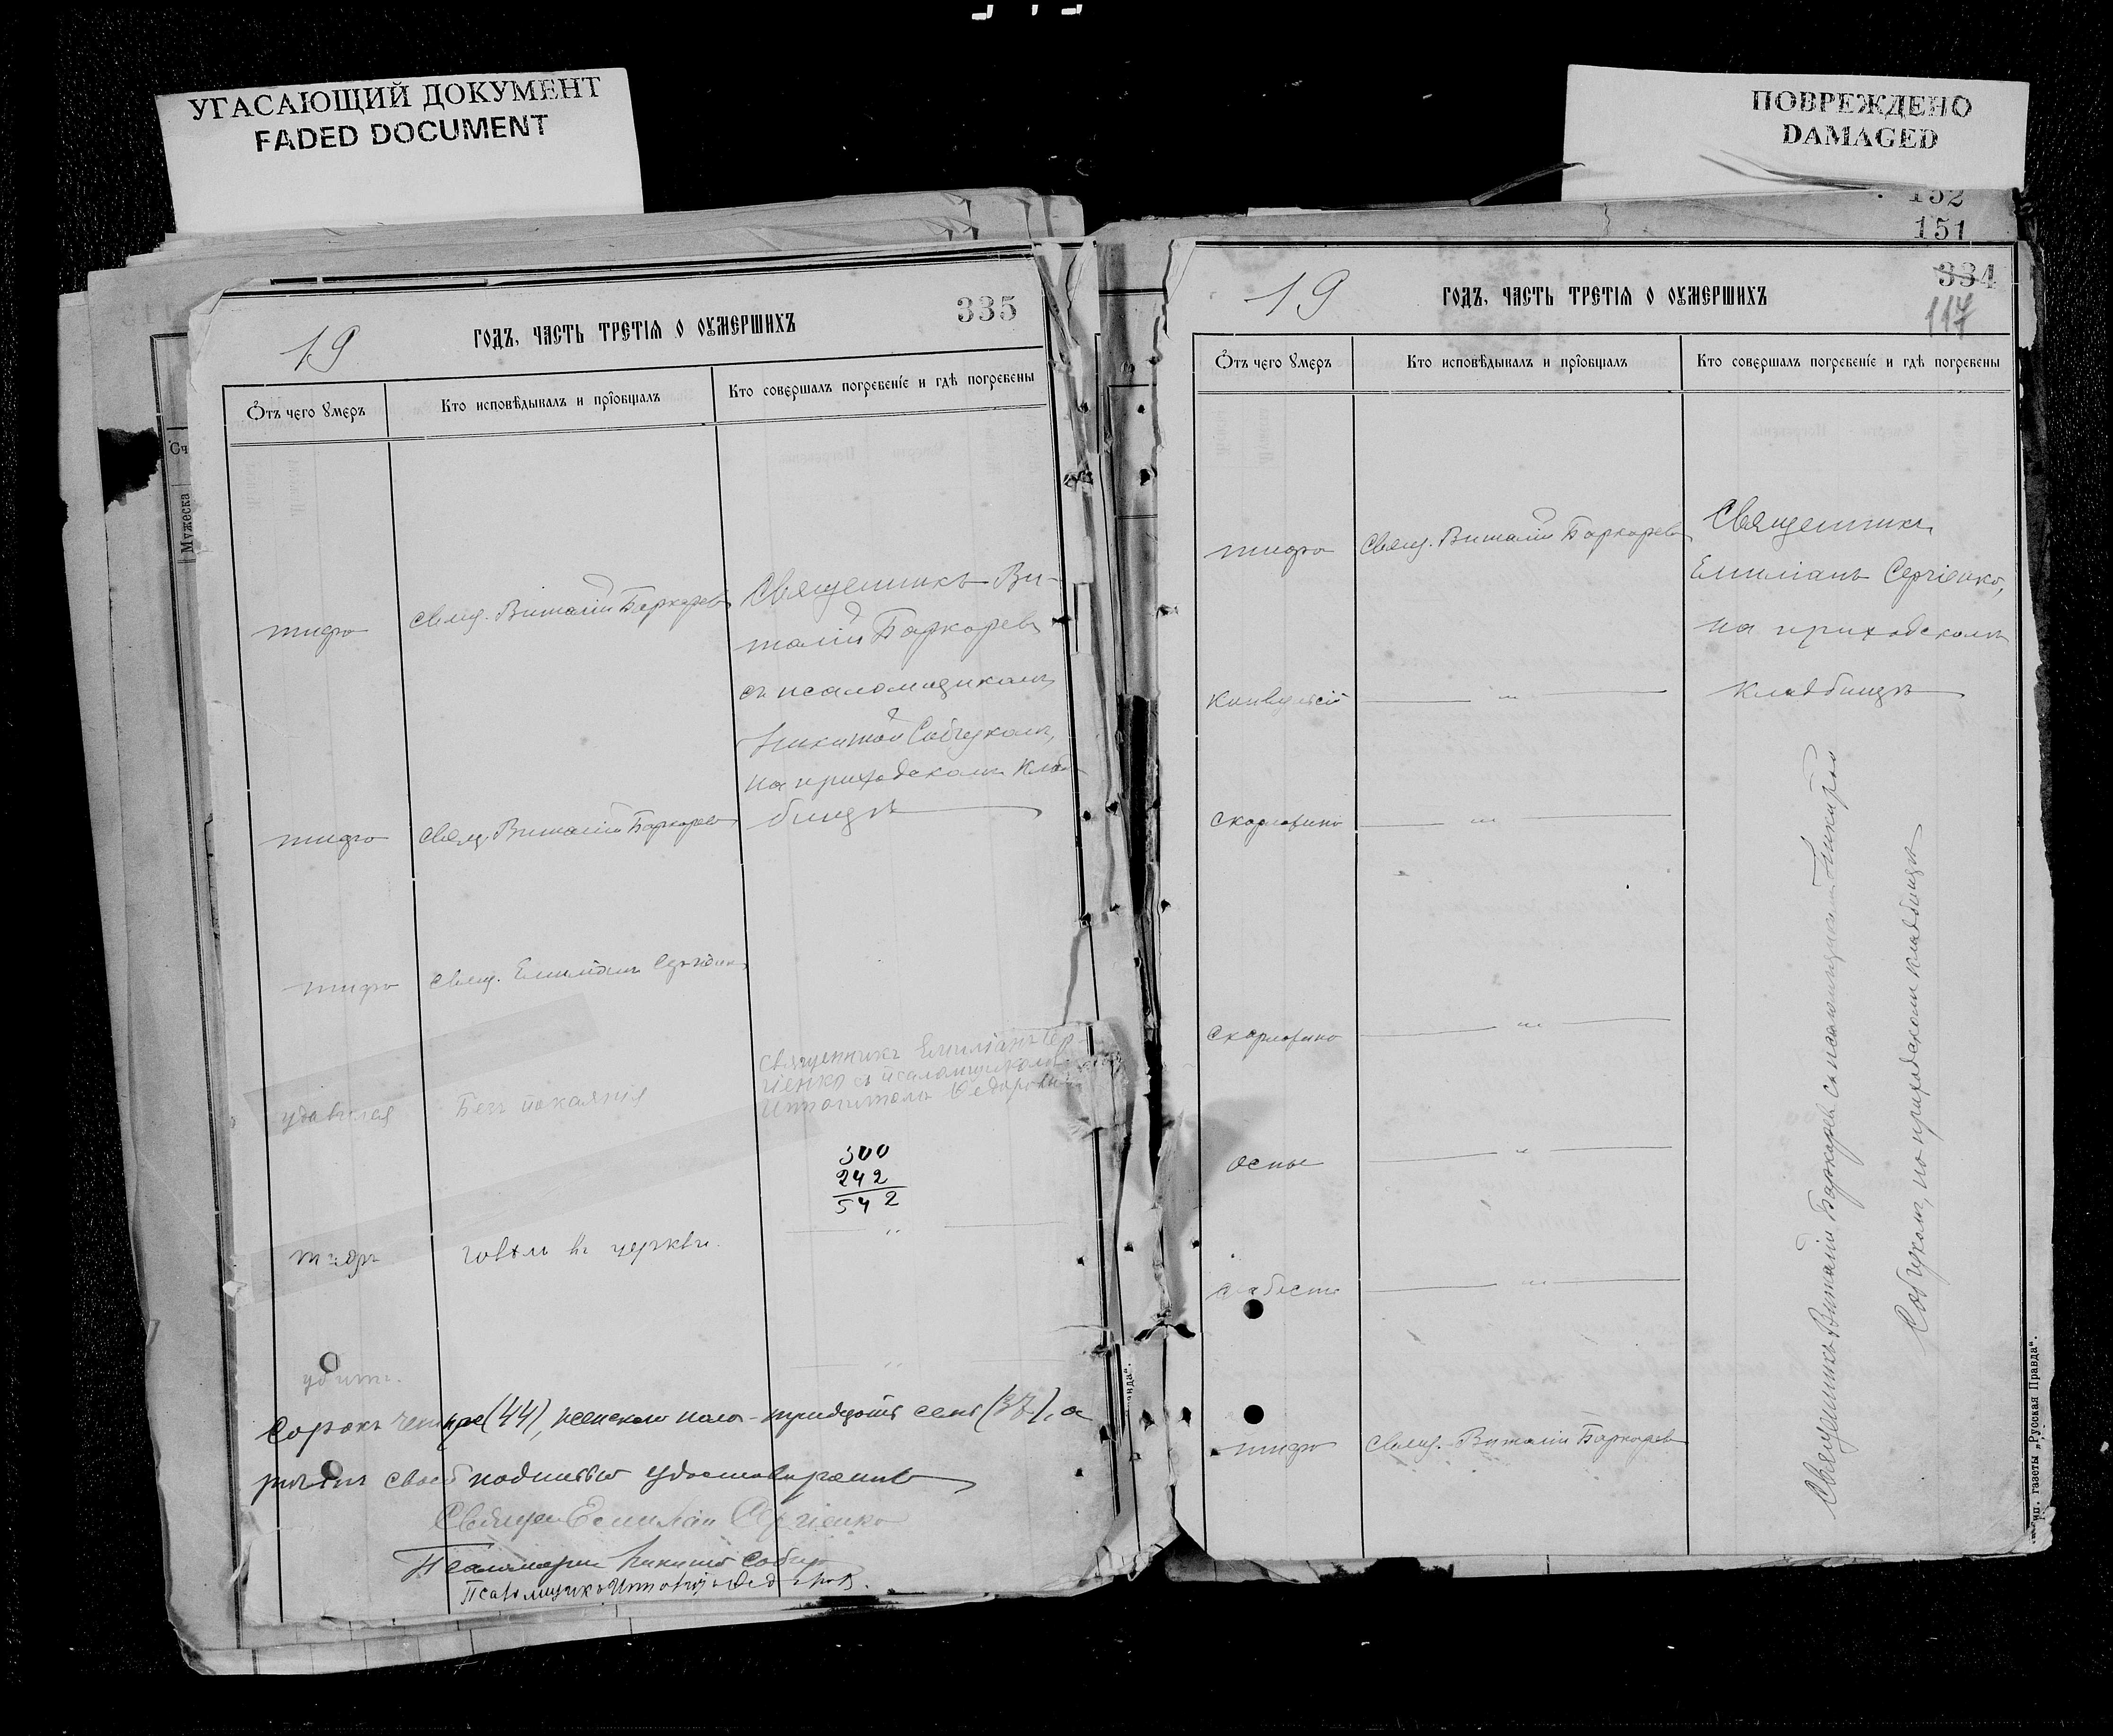 УГАСАЮЩИЙ ДОКУМЕНТ
FADED DOCUMENT
ПОВРЕЖДЕНО
DAMAGED
152
151
19
ГОДЪ, ЧАСТЬ ТРЕТІѦ О ОУМЕРШИХЪ
335
Ѿтъ чего ꙋмеръ
Кто исповѣдывалъ и пріобщалъ
Кто совершалъ погребеніе и гдѣ погребены
Мужеска
тифа
Свящ. Виталій Баркарев
Священникъ Ви-
талій Баркарев
съ псаломщикомъ
Никитой Собчукомъ,
на приходскомъ клад-
бищѣ
тифа
Свящ. Виталій Баркарев
тифа
Свящ. Емиліанъ Сергіенко
удавился
Безъ покаянія
Священникъ Емиліанъ Сер-
гіенко съ псаломщиком
Ипполитомъ Федоров
300
242
542
тифъ
говѣлъ въ церкви.
"
убитъ.
"
Сорокъ четыре (44), женскаго пола - тридцать семь (37), а
своей подписью удостовѣряемъ
Священ Емиліан Сергіенко
Псаломщик Никита Собчук
Псаломщикъ Ипполитъ Федоров.
19
ГОДЪ, ЧАСТЬ ТРЕТІѦ О ОУМЕРШИХЪ
334
117
Ѿтъ чего ꙋмеръ
Кто исповѣдывалъ и пріобщалъ
Кто совершалъ погребеніе и гдѣ погребены
тифа
Свящ. Виталій Баркарев
Священникъ
Емиліанъ Сергіенко,
на приходскомъ
кладбищѣ
конвульсій
"
скарлатина
"
скарлатина
"
оспы
"
слабости
"
тифа
Свящ. Виталій Баркарев
Священникъ Виталій Баркарев съ псаломщикомъ Никитой
Собчукомъ, на приходскомъ кладбищѣ
Тип. газеты „Русская Правда“.